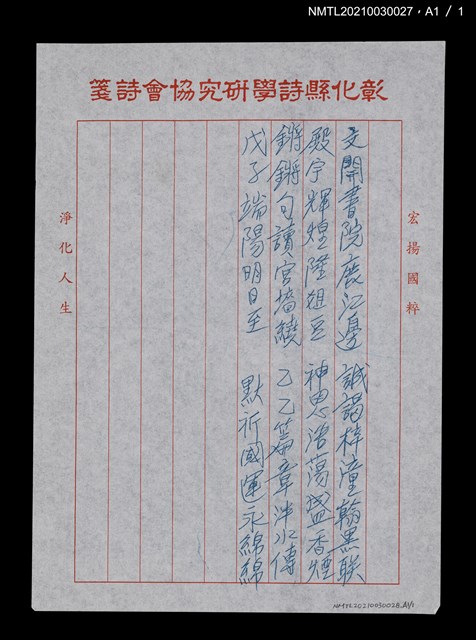 NMTL20210030027，A1 / 1
彰化縣詩學研究協會詩箋
宏揚國粹
文開書院鹿江邊 誠謁梓潼翰墨联
殿宇輝煌隆俎豆 神恩浩蕩盛香煙
鏘鏘句讀宮墻繞 乙乙篇章泮水傳
戊子端陽明日至 默祈國運永綿綿
淨化人生
NMTL20210030028, A1/1